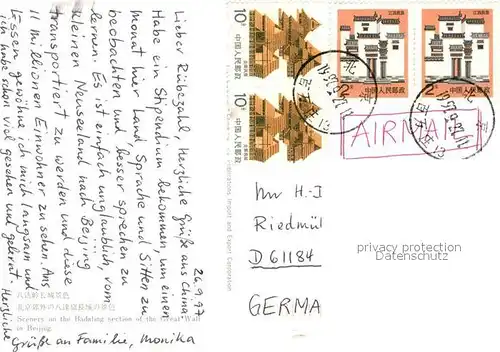 20.9.97
Lieber Rübezahl, Herzliche Grüße aus China.
Habe ein Stipendium bekommen, um einen
Monat hier Land, Sprache und Sitten zu
beobachten und besser sprechen zu
lernen. Es ist einfach unglaublich, vom
kleinen Neusseland nach Beijing
transportiert zu werden und diese
11 Millionen Einwohner zu sehen. Ans
Essen gewöhne ich mich langsam und
ich habe schon viel gesehen und gelernt.
Herzliche
Grüße an Familie, Monika
八达岭长城景色
Scenery on the Badaling section of the Great Wall
in Beijing
Import and Export Corporation
10分
中国人民邮政
10分
中国人民邮政
江西民居
中国人民邮政
中国人民邮政
北京
AIRMAIL
H.-J
Riedmül
D 61184
GERMA
privacy protection
Datenschutz